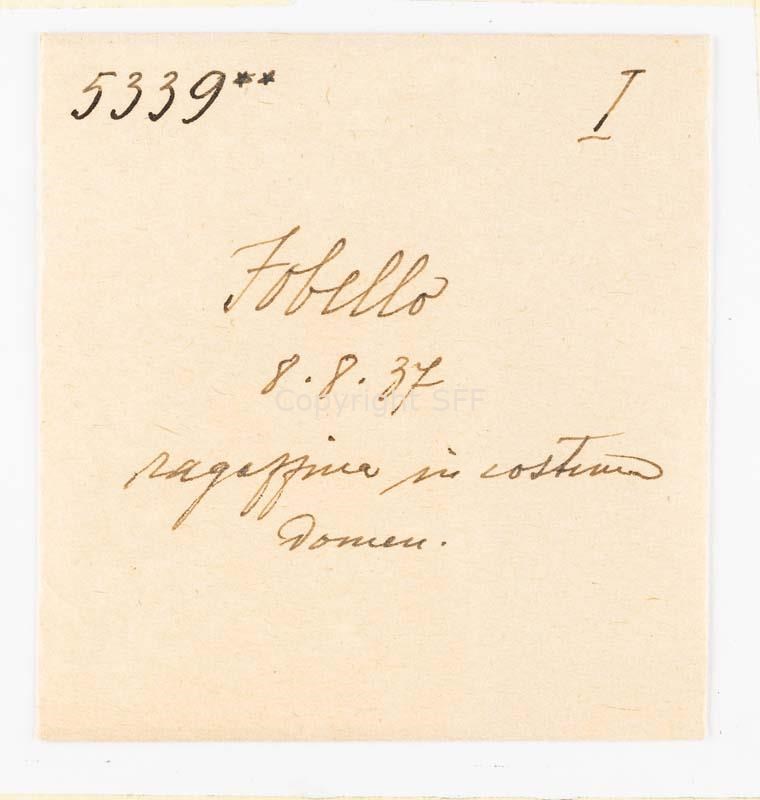 5339** I
Fobello
8.8.37
Copyright SFF
ragazzina in costume
Domen.